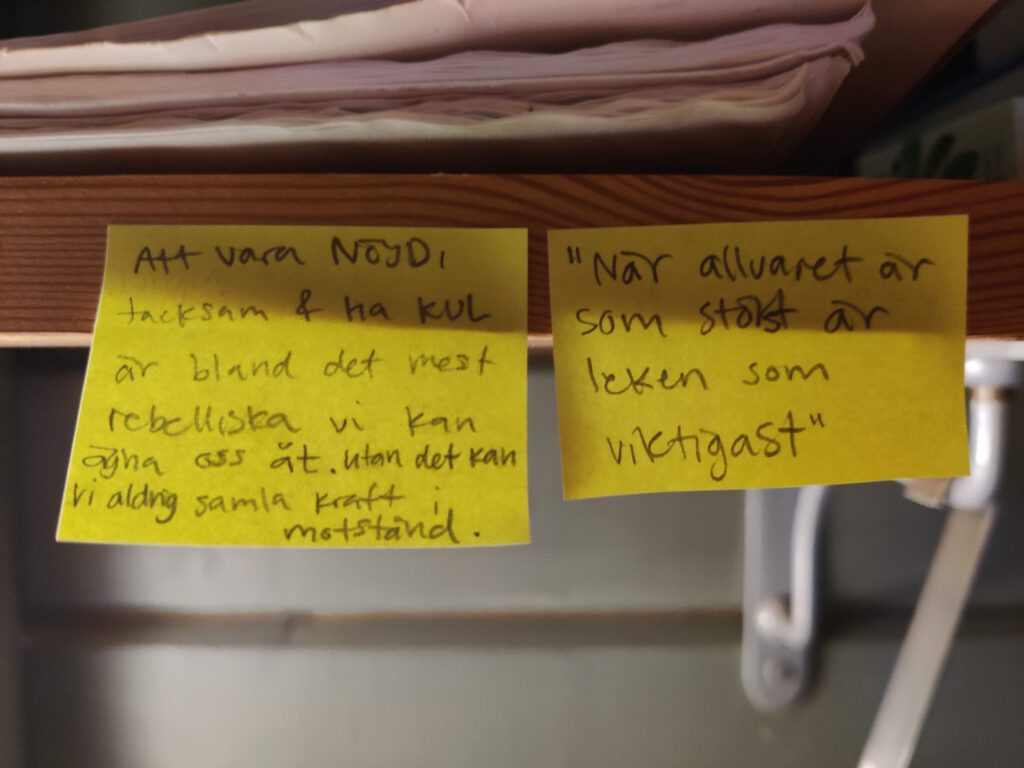 Att vara NÖJD,
tacksam & ha KUL
är bland det mest
rebelliska vi kan
ägna oss åt. utan det kan
vi aldrig samla kraft i
motstånd.
"När allvaret är
som störst är
leken som
viktigast"